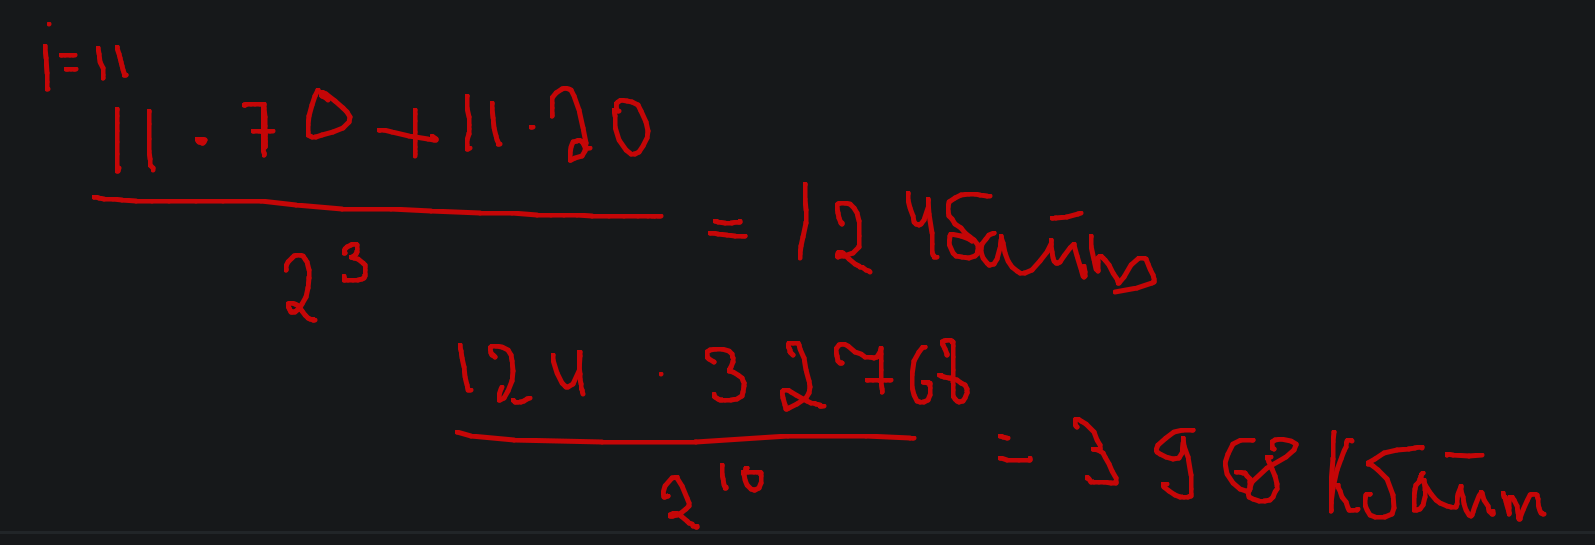 i=11
11·70+11·20
2³ = 124байт
124 · 32768
2¹⁰ = 3968 Кбайт